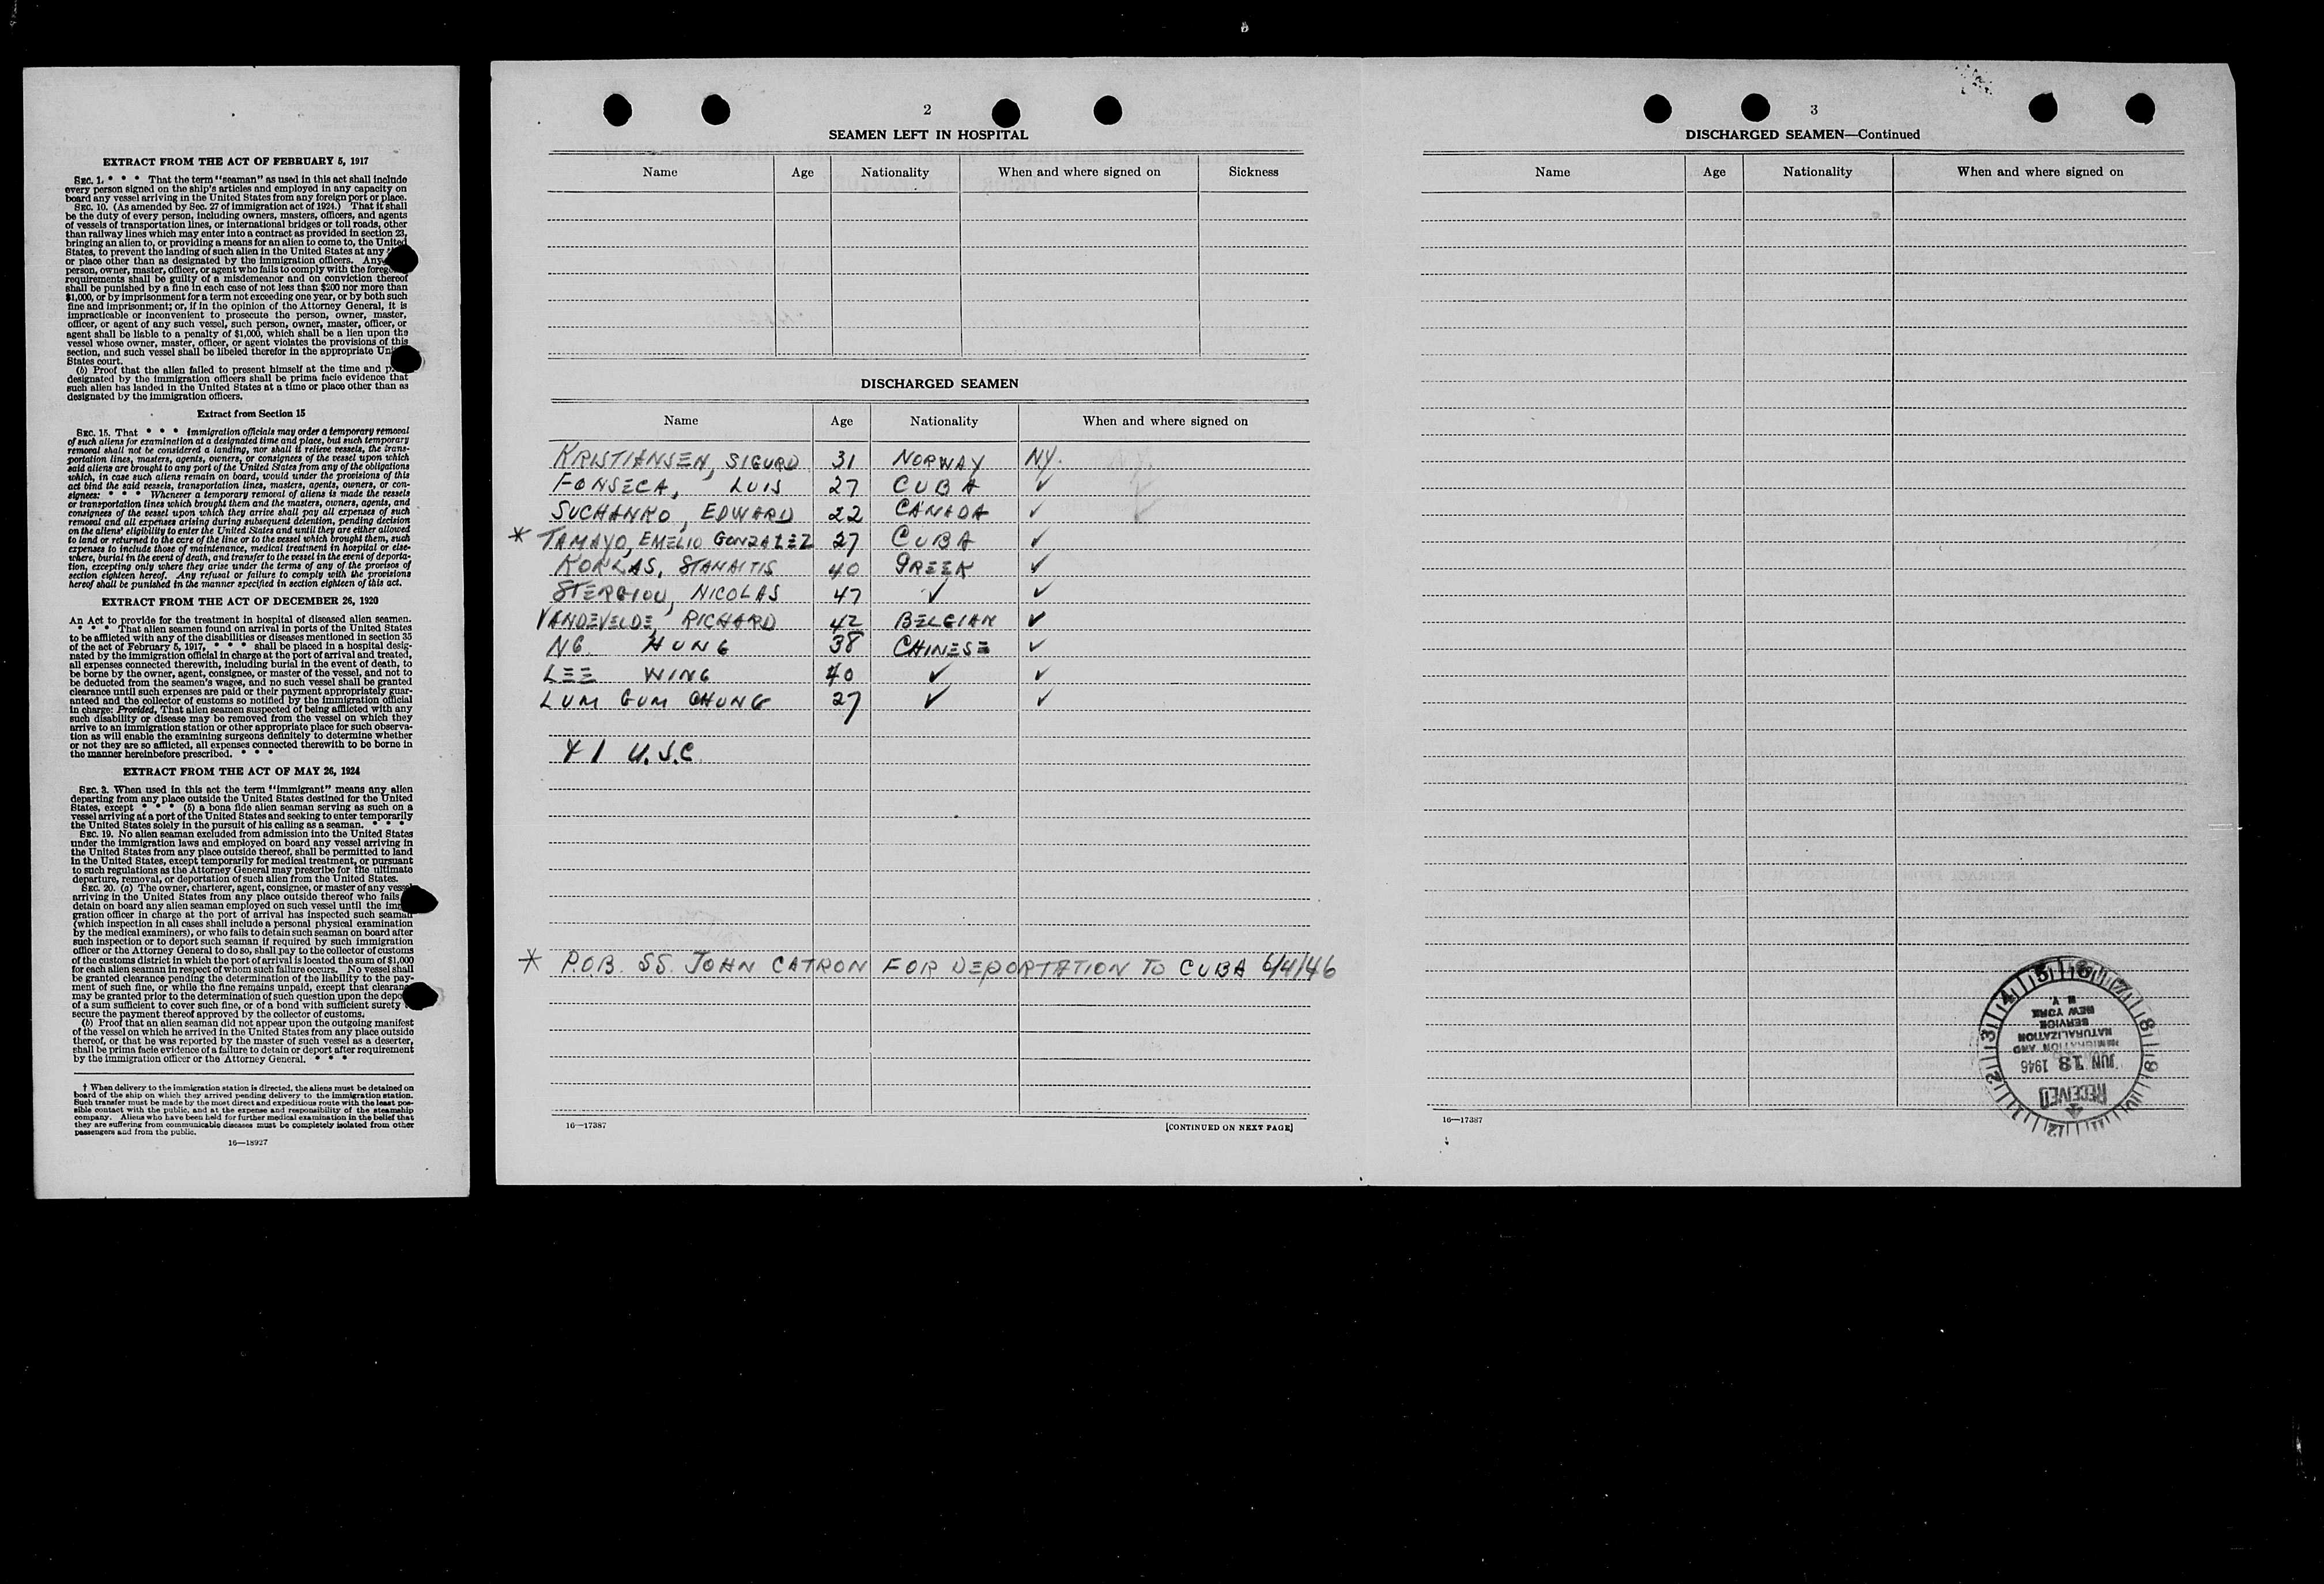 EXTRACT FROM THE ACT OF FEBRUARY 5, 1917
SEC. 1. * * * That the term "seaman" as used in this act shall include
every person signed on the ship's articles and employed in any capacity on
board any vessel arriving in the United States from any foreign port or place.
SEC. 10. (As amended by Sec. 27 of immigration act of 1924.) That it shall
be the duty of every person, including owners, masters, officers, and agents
of vessels of transportation lines, or international bridges or toll roads, other
than railway lines which may enter into a contract as provided in section 23,
bringing an alien to, or providing a means for an alien to come to, the United
States, to prevent the landing of such alien in the United States at any
or place other than as designated by the immigration officers. Any
person, owner, master, officer, or agent who fails to comply with the
requirements shall be guilty of a misdemeanor and on conviction thereof
shall be punished by a fine in each case of not less than $200 nor more than
$1,000, or by imprisonment for a term not exceeding one year, or by both such
fine and imprisonment; or, if in the opinion of the Attorney General, it is
impracticable or inconvenient to prosecute the person, owner, master,
officer, or agent of any such vessel, such person, owner, master, officer, or
agent shall be liable to a penalty of $1,000, which shall be a lien upon the
vessel whose owner, master, officer, or agent violates the provisions of this
section, and such vessel shall be libeled therefor in the appropriate
States court.
(b) Proof that the alien failed to present himself at the time and
designated by the immigration officers shall be prima facie evidence that
such alien has landed in the United States at a time or place other than as
designated by the immigration officers.
Extract from Section 15
SEC. 15. That * * * immigration officials may order a temporary removal
of such aliens for examination at a designated time and place, but such temporary
removal shall not be considered a landing, nor shall it relieve vessels, the trans-
portation lines, masters, agents, owners, or consignees of the vessel upon which
said aliens are brought to any port of the United States from any of the obligations
which, in case such aliens remain on board, would under the provisions of this
act bind the said vessels, transportation lines, masters, agents, owners, or con-
signees: * * * Whenever a temporary removal of aliens is made the vessels
or transportation lines which brought them and the masters, owners, agents, and
consignees of the vessel upon which they arrive shall pay all expenses of such
removal and all expenses arising during subsequent detention, pending decision
on the aliens' eligibility to enter the United States and until they are either allowed
to land or returned to the care of the line or to the vessel which brought them, such
expenses to include those of maintenance, medical treatment in hospital or else-
where, burial in the event of death, and transfer to the vessel in the event of deporta-
tion, excepting only where they arise under the terms of any of the provisos of
section eighteen hereof. Any refusal or failure to comply with the provisions
hereof shall be punished in the manner specified in section eighteen of this act.
EXTRACT FROM THE ACT OF DECEMBER 26, 1920
An Act to provide for the treatment in hospital of diseased alien seamen.
* * * That alien seamen found on arrival in ports of the United States
to be afflicted with any of the disabilities or diseases mentioned in section 35
of the act of February 5, 1917, * * * shall be placed in a hospital desig-
nated by the immigration official in charge at the port of arrival and treated,
all expenses connected therewith, including burial in the event of death, to
be borne by the owner, agent, consignee, or master of the vessel, and not to
be deducted from the seamen's wages, and no such vessel shall be granted
clearance until such expenses are paid or their payment appropriately guar-
anteed and the collector of customs so notified by the immigration official
in charge: Provided, That alien seamen suspected of being afflicted with any
such disability or disease may be removed from the vessel on which they
arrive to an immigration station or other appropriate place for such observa-
tion as will enable the examining surgeons definitely to determine whether
or not they are so afflicted, all expenses connected therewith to be borne in
the manner hereinbefore prescribed. * * *
EXTRACT FROM THE ACT OF MAY 26, 1924
SEC. 3. When used in this act the term "immigrant" means any alien
departing from any place outside the United States destined for the United
States, except * * * (5) a bona fide alien seaman serving as such on a
vessel arriving at a port of the United States and seeking to enter temporarily
the United States solely in the pursuit of his calling as a seaman. * * *
SEC. 19. No alien seaman excluded from admission into the United States
under the immigration laws and employed on board any vessel arriving in
the United States from any place outside thereof, shall be permitted to land
in the United States, except temporarily for medical treatment, or pursuant
to such regulations as the Attorney General may prescribe for the ultimate
departure, removal, or deportation of such alien from the United States.
SEC. 20. (a) The owner, charterer, agent, consignee, or master of any vessel
arriving in the United States from any place outside thereof who fails
detain on board any alien seaman employed on such vessel until the immi-
gration officer in charge at the port of arrival has inspected such seaman
(which inspection in all cases shall include a personal physical examination
by the medical examiners), or who fails to detain such seaman on board after
such inspection or to deport such seaman if required by such immigration
officer or the Attorney General to do so, shall pay to the collector of customs
of the customs district in which the port of arrival is located the sum of $1,000
for each alien seaman in respect of whom such failure occurs. No vessel shall
be granted clearance pending the determination of the liability to the pay-
ment of such fine, or while the fine remains unpaid, except that clearance
may be granted prior to the determination of such question upon the
of a sum sufficient to cover such fine, or of a bond with sufficient surety
secure the payment thereof approved by the collector of customs.
(b) Proof that an alien seaman did not appear upon the outgoing manifest
of the vessel on which he arrived in the United States from any place outside
thereof, or that he was reported by the master of such vessel as a deserter,
shall be prima facie evidence of a failure to detain or deport after requirement
by the immigration officer or the Attorney General. * * *
† When delivery to the immigration station is directed, the aliens must be detained on
board of the ship on which they arrived pending delivery to the immigration station.
Such transfer must be made by the most direct and expeditious route with the least pos-
sible contact with the public, and at the expense and responsibility of the steamship
company. Aliens who have been held for further medical examination in the belief that
they are suffering from communicable diseases must be completely isolated from other
passengers and from the public.
16—18927
2
SEAMEN LEFT IN HOSPITAL
Name Age Nationality When and where signed on Sickness
DISCHARGED SEAMEN
Name Age Nationality When and where signed on
KRISTIANSEN, SIGURD 31 NORWAY NY.
FONSECA, LUIS 27 CUBA ✓
SUCHANKO, EDWARD 22 CANADA ✓
* TAMAYO, EMELIO GONZALEZ 27 CUBA ✓
KORLAS, STAMAITIS 40 GREEK ✓
STERGIOU, NICOLAS 47 ✓ ✓
VANDEVELDE, RICHARD 42 BELGIAN ✓
NG HUNG 38 CHINESE ✓
LEE WING 40 ✓ ✓
LUM GUM CHUNG 27 ✓ ✓
41 U.S.C.
* P.O.B. SS. JOHN CATRON FOR DEPORTATION TO CUBA 6/4/46
16—17387
[CONTINUED ON NEXT PAGE]
3
DISCHARGED SEAMEN—Continued
Name Age Nationality When and where signed on
16—17387
RECEIVED
JUN 18 1946
IMMIGRATION AND
NATURALIZATION
SERVICE
NEW YORK
N.Y.
1 2 3 4 5 6 7 8 9 10 11 12